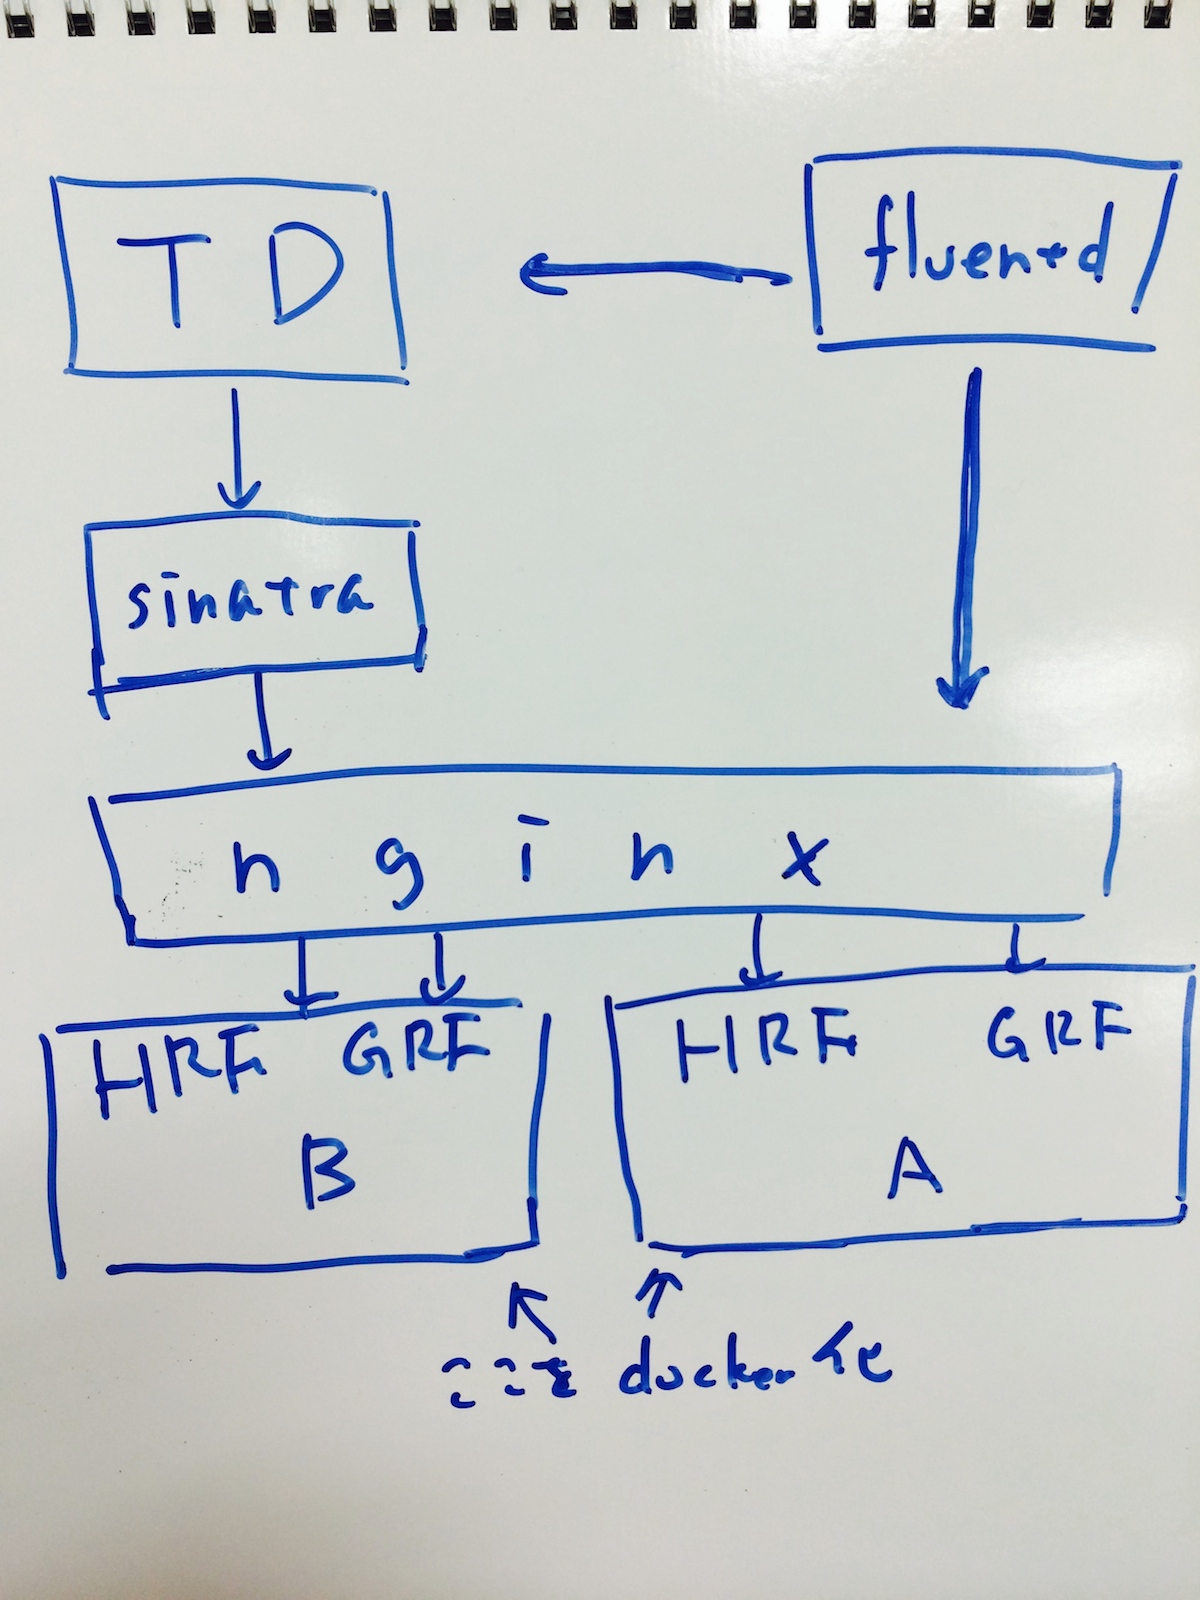 TD
fluentd
sinatra
nginx
HRF GRF
B
HRF GRF
A
ここをdocker化